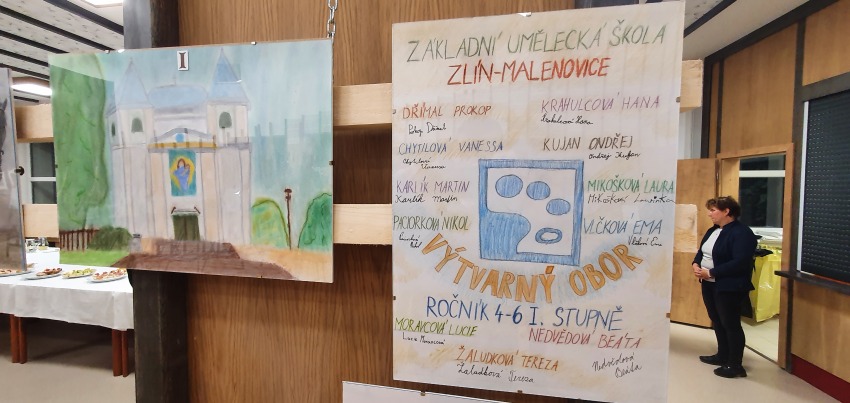 I
ZÁKLADNÍ UMĚLECKÁ ŠKOLA
ZLÍN-MALENOVICE
DŘÍMAL PROKOP
Prokop Dřímal
KRAHULCOVÁ HANA
Krahulcová Hana
CHYTILOVÁ VANESSA
Chytilová
Vanessa
KUJAN ONDŘEJ
Ondřej Kujan
KARLÍK MARTIN
Karlík Martin
MIKOŠKOVÁ LAURA
Mikošková
PACIORKOVÁ NIKOL
VLČKOVÁ EMA
Vlčková Ema
VÝTVARNÝ OBOR
ROČNÍK 4-6 I. STUPNĚ
MORAVCOVÁ LUCIE
Lucie Moravcová
NEDVĚDOVÁ BEÁTA
Nedvědová
Beáta
ŽALUDKOVÁ TEREZA
Žaludková Tereza